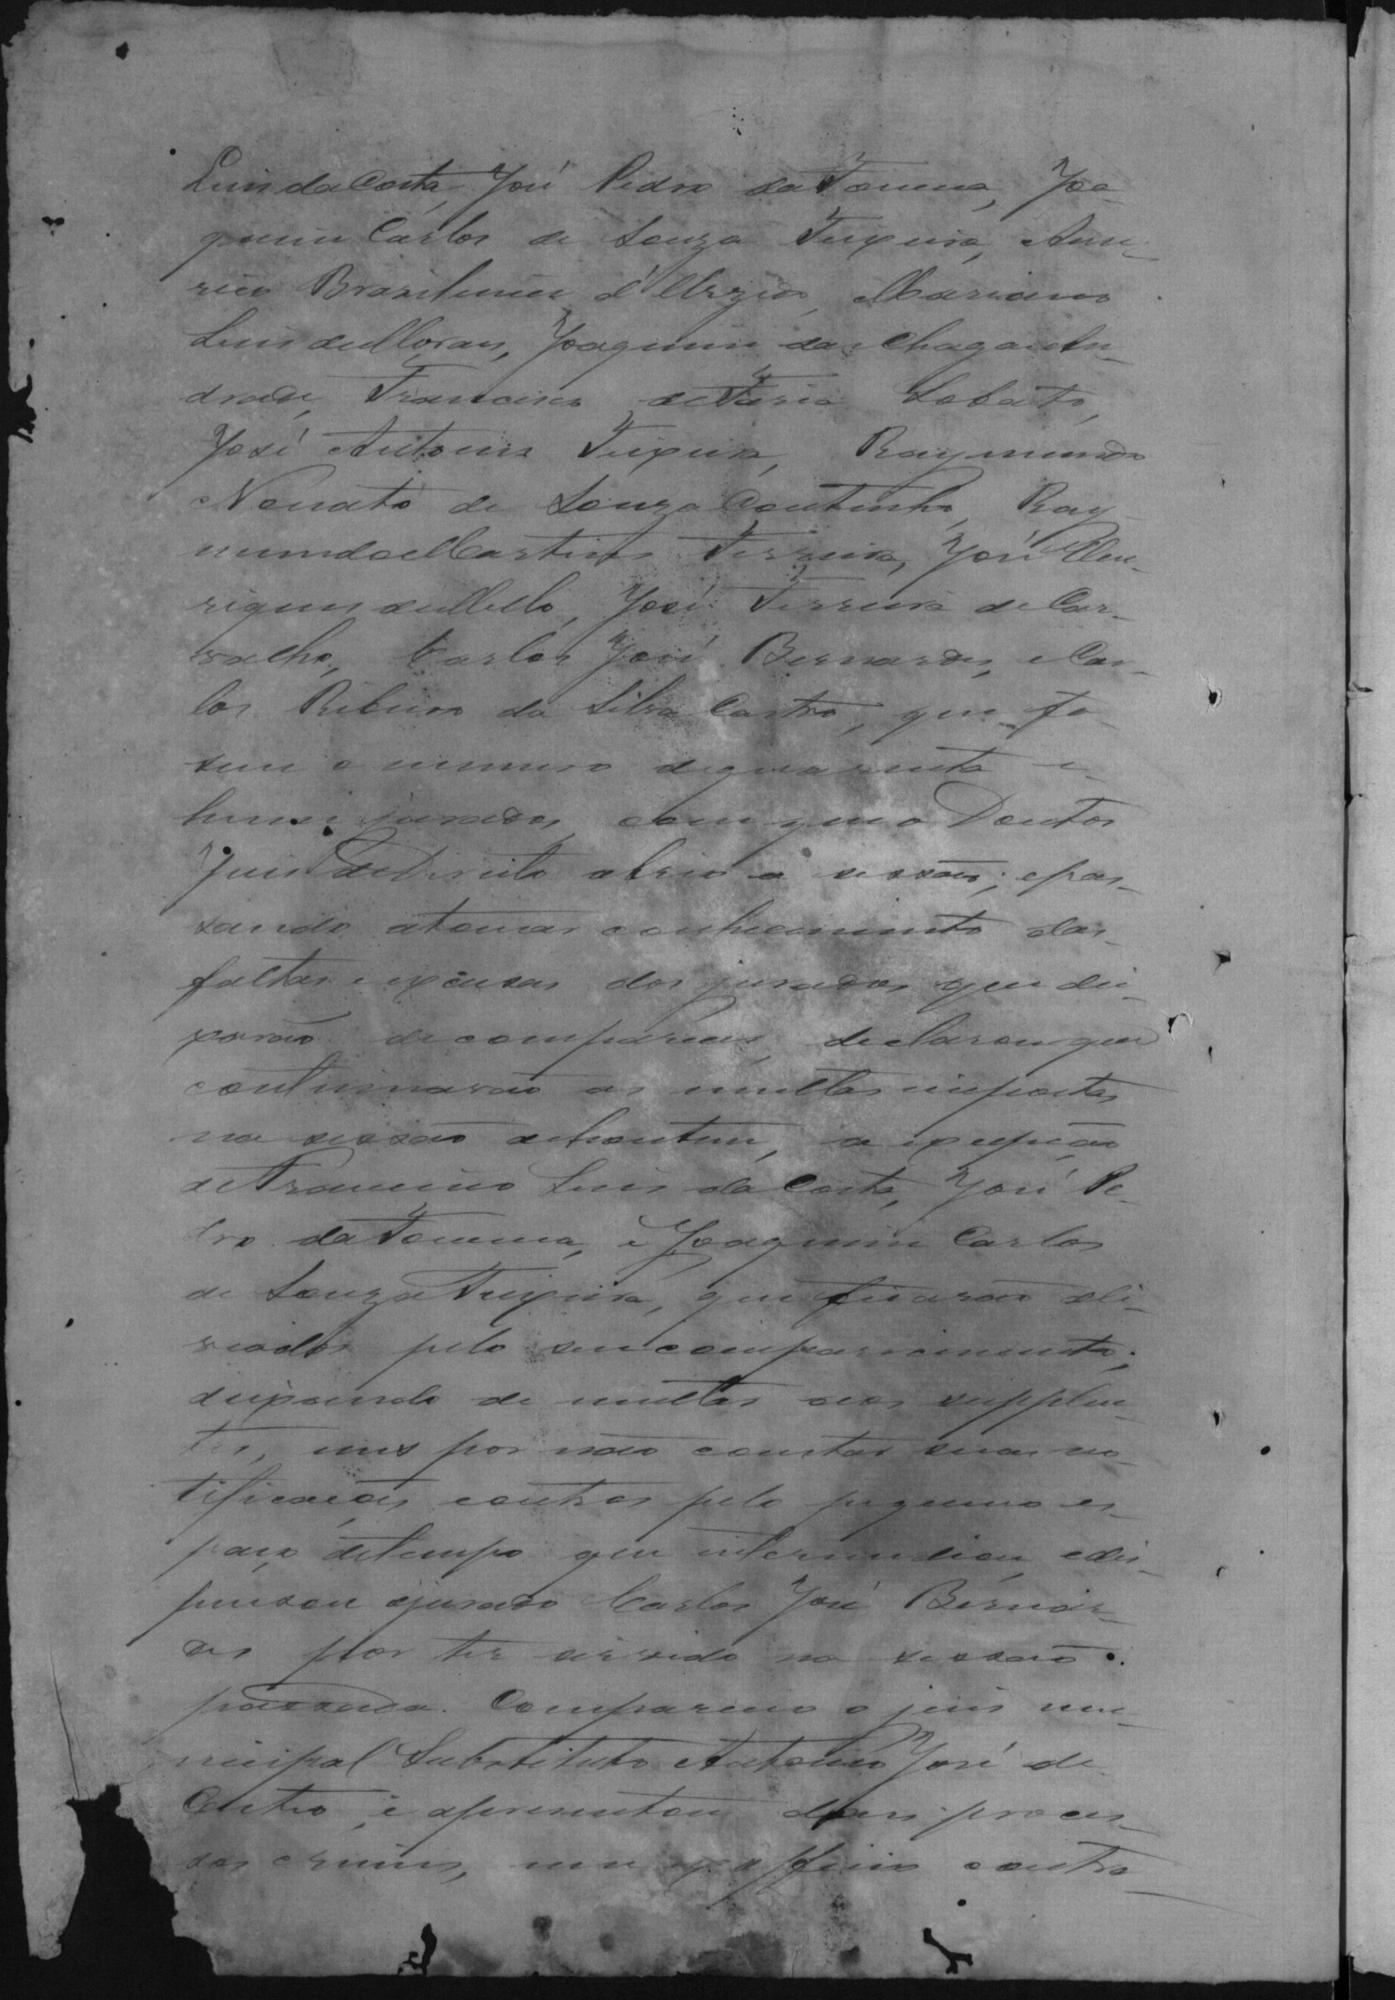 Luis da Costa, José Pedro da Fonseca, Joa-
quim Carlos de Souza Teixeira, Ame-
rico Brasilino d'Urzedo, Marianno
Luis de Moraes, Joaquim das Chagas An-
drade, Francisco de Faria Lobato,
José Antonio Teixeira, Raymundo
Nonato de Souza Coutinho, Ray-
mundo Martins Ferreira, José Hen-
riques de Mello, José Ferreira de Car-
valho, Carlos José Bernardes, e Car-
los Ribeiro da Silva Castro, que fa-
sem o numero de quarenta e
hum jurados, com que o Doutor
Juis de Direito abrio a sessão; e pas-
sando a tomar conhecimento das
faltas e excusas dos jurados que dei-
xarão de comparecer, declarou que
continuarão as multas impostas
na sessão de hontem, a excepção
de Francisco Luis da Costa, José Pe-
dro da Fonseca, e Joaquim Carlos
de Souza Teixeira, que ficarão ali-
viados pelo seu comparecimento;
deixando de multar aos supplen-
tes, uns por não constar suas no-
tificações, outros pelo pequeno es-
paço de tempo que intermediou, e dis-
pensou o jurado Carlos José Bernar-
des por ter servido na sessão
passada. Compareceo o juis mu-
nicipal Substituto Antonio José de
Castro, e apresentou dous proces-
sos crimes, um ex officio contra